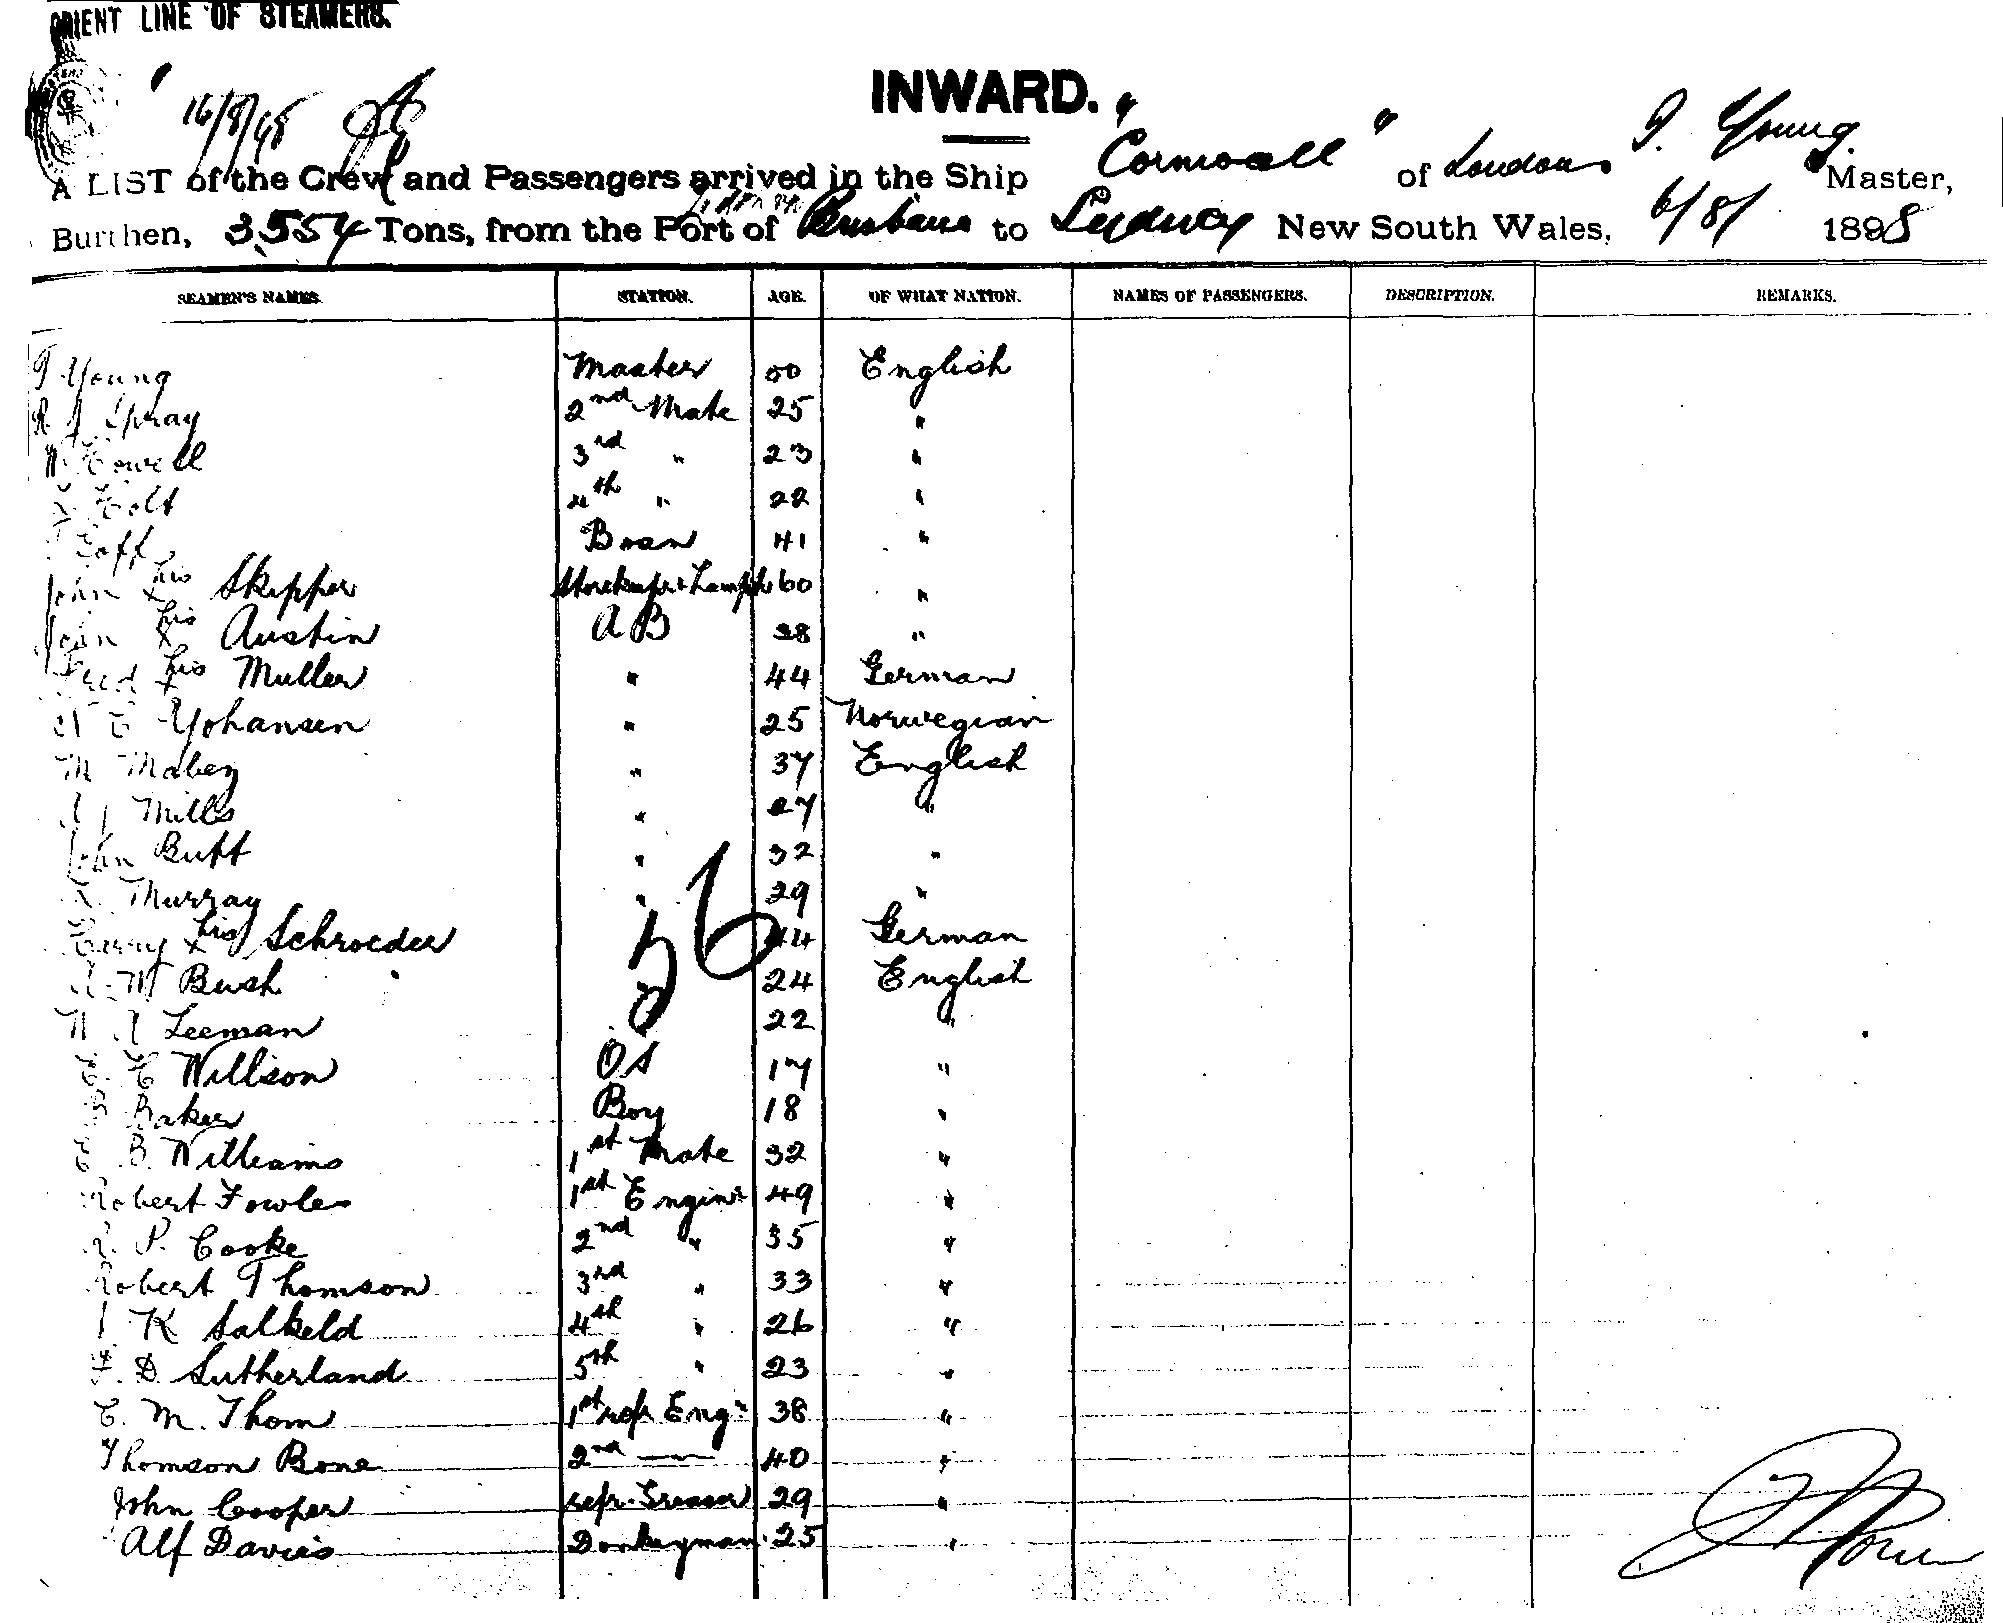 ORIENT LINE OF STEAMERS.
16/8/98
INWARD.
A LIST of the Crew and Passengers arrived in the Ship "Cornwall" of London, T. Young Master,
Burthen, 3,554 Tons, from the Port of Brisbane to Sydney New South Wales, 6/8/ 1898
SEAMEN'S NAMES. STATION. AGE. OF WHAT NATION. NAMES OF PASSENGERS. DESCRIPTION. REMARKS.
T Young Master 50 English
Spray 2nd Mate 25 "
W. Howell 3rd " 23 "
Holt 4th " 22 "
Bosn 41 "
John his x Skipper Storekeeper & Lamp 60 "
John his x Austin AB 38 "
Fred his x Muller " 44 German
Yohansen " 25 Norwegian
M Mabey " 37 English
Mills " 27 "
John Butt " 32 "
Murray " 29 "
Harry his x Schroeder 44 German
W Bush 24 English
W A Leeman 22 "
Willison OS 17 "
Baker Boy 18 "
B. Williams 1st Mate 32 "
Robert Fowles 1st Enginr 49 "
P. Cooke 2nd " 35 "
Robert Thomson 3rd " 33 "
K Salkeld 4th " 26 "
F. D Sutherland 5th " 23 "
C. M. Thom 1st refr Engr 38 "
Thomson Bone 2nd — 40 "
John Cooper refr. Greaser 29 "
Alf Davies Donkeyman 25 "
56